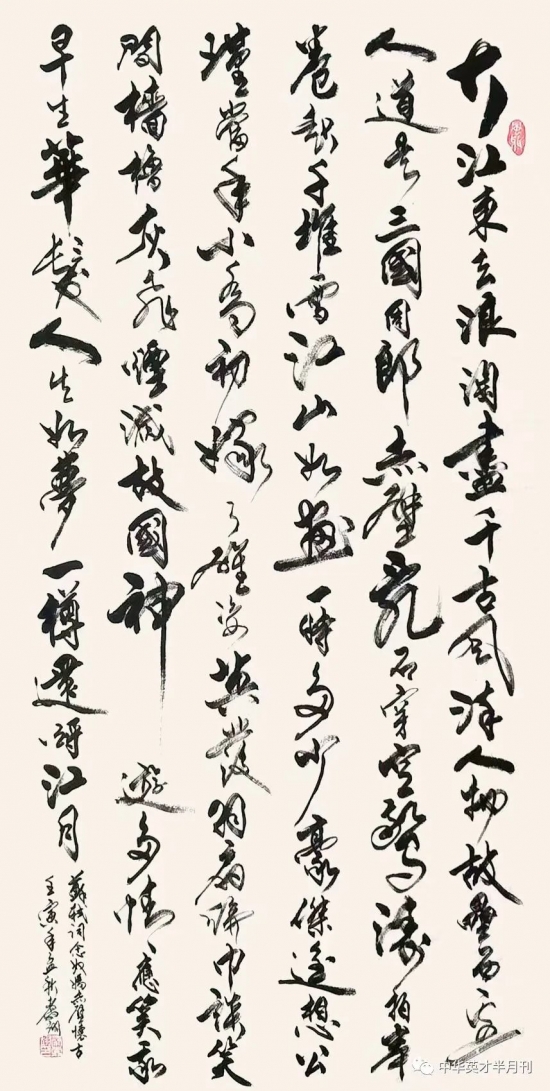 大江東去浪淘盡千古風流人物故壘西邊
人道是三國周郎赤壁亂石穿空驚濤拍岸
卷起千堆雪江山如畫一時多少豪傑遙想公
瑾當年小喬初嫁了雄姿英發羽扇綸巾談笑
間檣櫓灰飛煙滅故國神遊多情應笑我
早生華髮人生如夢一樽還酹江月
蘇軾詞念奴嬌赤壁懷古
壬寅年孟秋
中华英才半月刊